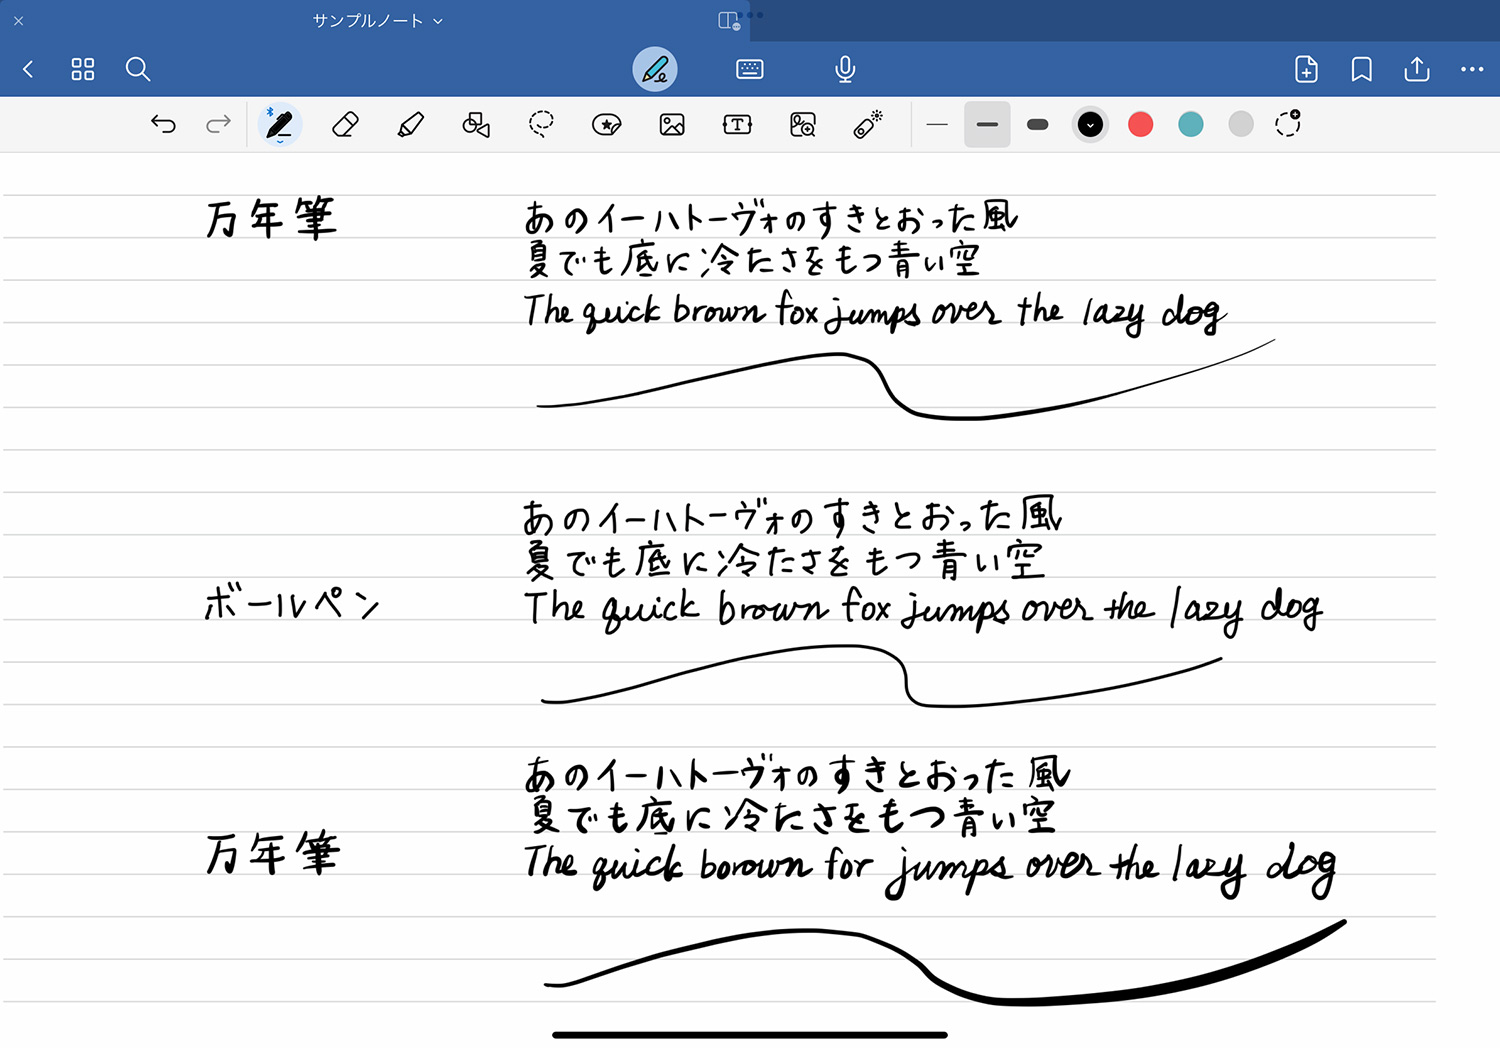 サンプルノート
万年筆
あのイーハトーヴォのすきとおった風
夏でも底に冷たさをもつ青い空
The quick brown fox jumps over the lazy dog
ボールペン
あのイーハトーヴォのすきとおった風
夏でも底に冷たさをもつ青い空
The quick brown fox jumps over the lazy dog
万年筆
あのイーハトーヴォのすきとおった風
夏でも底に冷たさをもつ青い空
The quick borown for jumps over the lazy dog